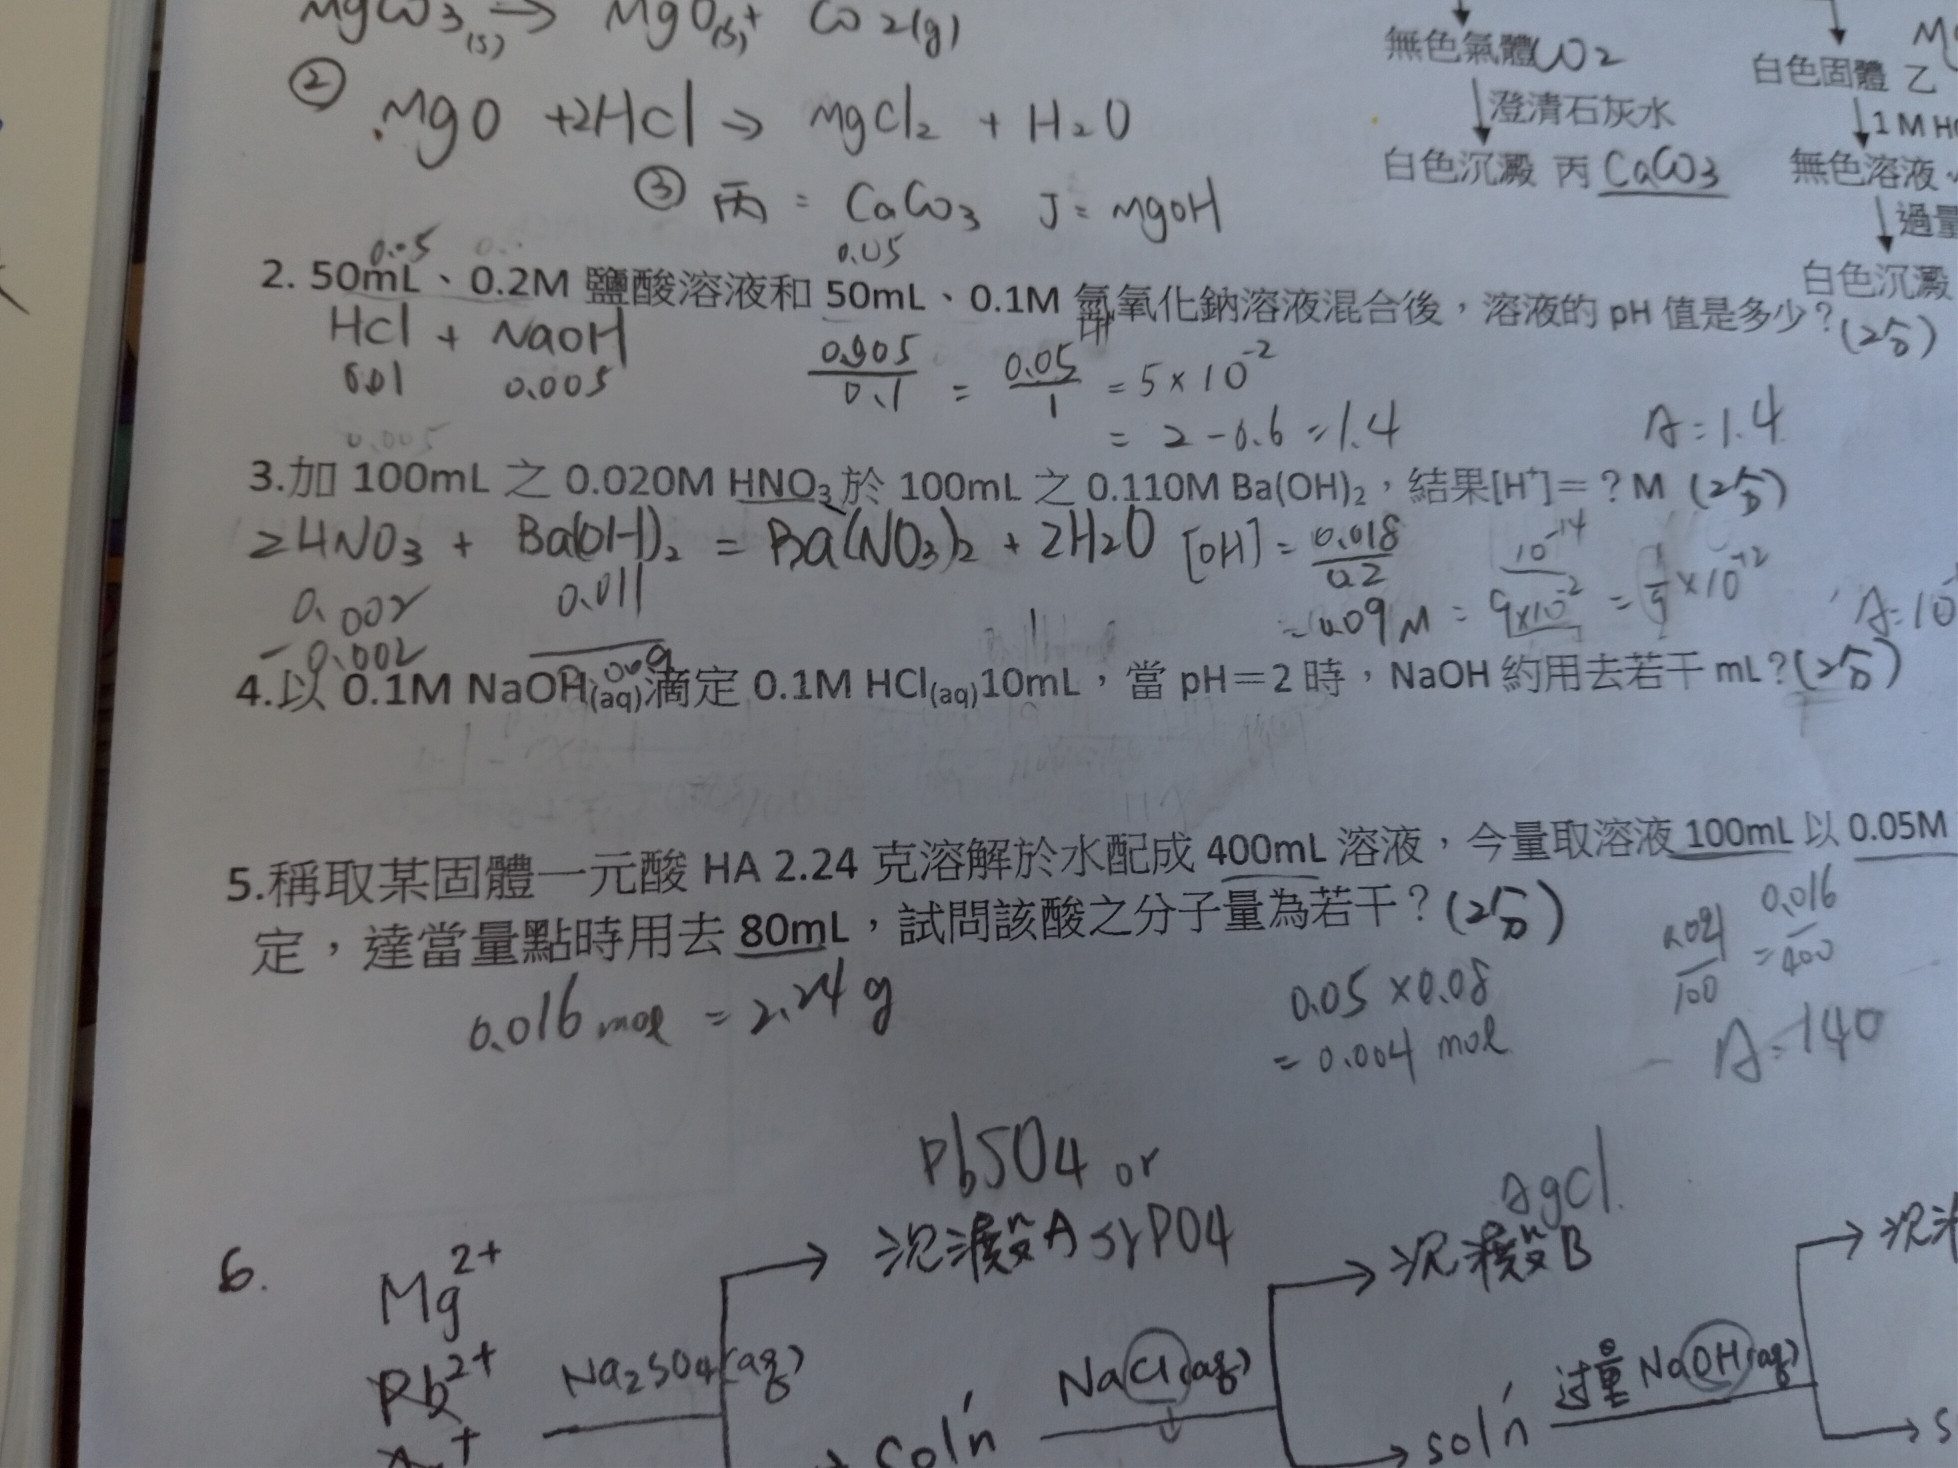 MgCO3(s) → MgO(s) + CO2(g)
② MgO +2HCl → MgCl2 + H2O
③ 丙 = CaCO3 J = MgOH
無色氣體CO2
澄清石灰水
白色沉澱 丙 CaCO3
白色固體 乙
1 M
無色溶液
過量
白色沉澱
0.05 0.05
2. 50mL、0.2M 鹽酸溶液和 50mL、0.1M 氫氧化鈉溶液混合後，溶液的 pH 值是多少？(2分)
HCl + NaOH
0.01 0.005
0.005/0.1 = 0.05/1 = 5 × 10^-2
= 2 - 0.6 = 1.4 A = 1.4
3.加 100mL 之 0.020M HNO3 於 100mL 之 0.110M Ba(OH)2，結果[H+]＝？M (2分)
2HNO3 + Ba(OH)2 = Ba(NO3)2 + 2H2O [OH] = 0.018/0.2
0.002 0.011
-0.002 0.009
= 0.09 M = 10^-14/9×10^-2 = 1/9 × 10^-12 A = 10
4.以 0.1M NaOH(aq)滴定 0.1M HCl(aq)10mL，當 pH＝2 時，NaOH 約用去若干 mL？(2分)
5.稱取某固體一元酸 HA 2.24 克溶解於水配成 400mL 溶液，今量取溶液 100mL 以 0.05M
定，達當量點時用去 80mL，試問該酸之分子量為若干？(2分)
0.016 mol = 2.24 g
0.05 × 0.08
= 0.004 mol
/100 = 0.016/400
A = 140
PbSO4 or
沉澱A SrPO4
AgCl
沉澱B
6.
Mg2+
Pb2+
Na2SO4(aq)
sol'n
NaCl(aq)
sol'n
过量 NaOH(aq)